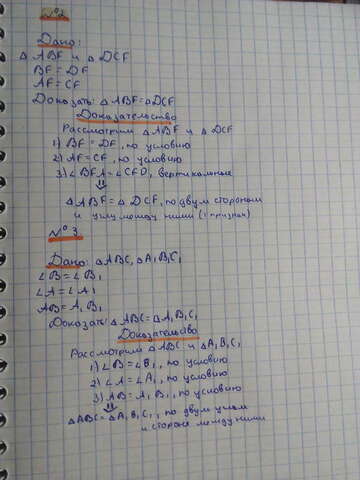 №2
Дано:
Δ ABF и Δ DCF
BF = DF
AF = CF
Доказать: Δ ABF = Δ DCF
Доказательство
Рассмотрим Δ ABF и Δ DCF
1) BF = DF, по условию
2) AF = CF, по условию
3) ∠ BFA = ∠ CFD, вертикальные
⇓
Δ ABF = Δ DCF, по двум сторонам
и углу между ними (1 признак)
№ 3
Дано: Δ ABC, Δ A₁B₁C₁
∠B = ∠B₁
∠A = ∠A₁
AB = A₁B₁
Доказать: Δ ABC = Δ A₁B₁C₁
Доказательство
Рассмотрим Δ ABC и Δ A₁B₁C₁
1) ∠B = ∠B₁, по условию
2) ∠A = ∠A₁, по условию
3) AB = A₁B₁, по условию
⇓
Δ ABC = Δ A₁B₁C₁, по двум углам
и стороне между ними